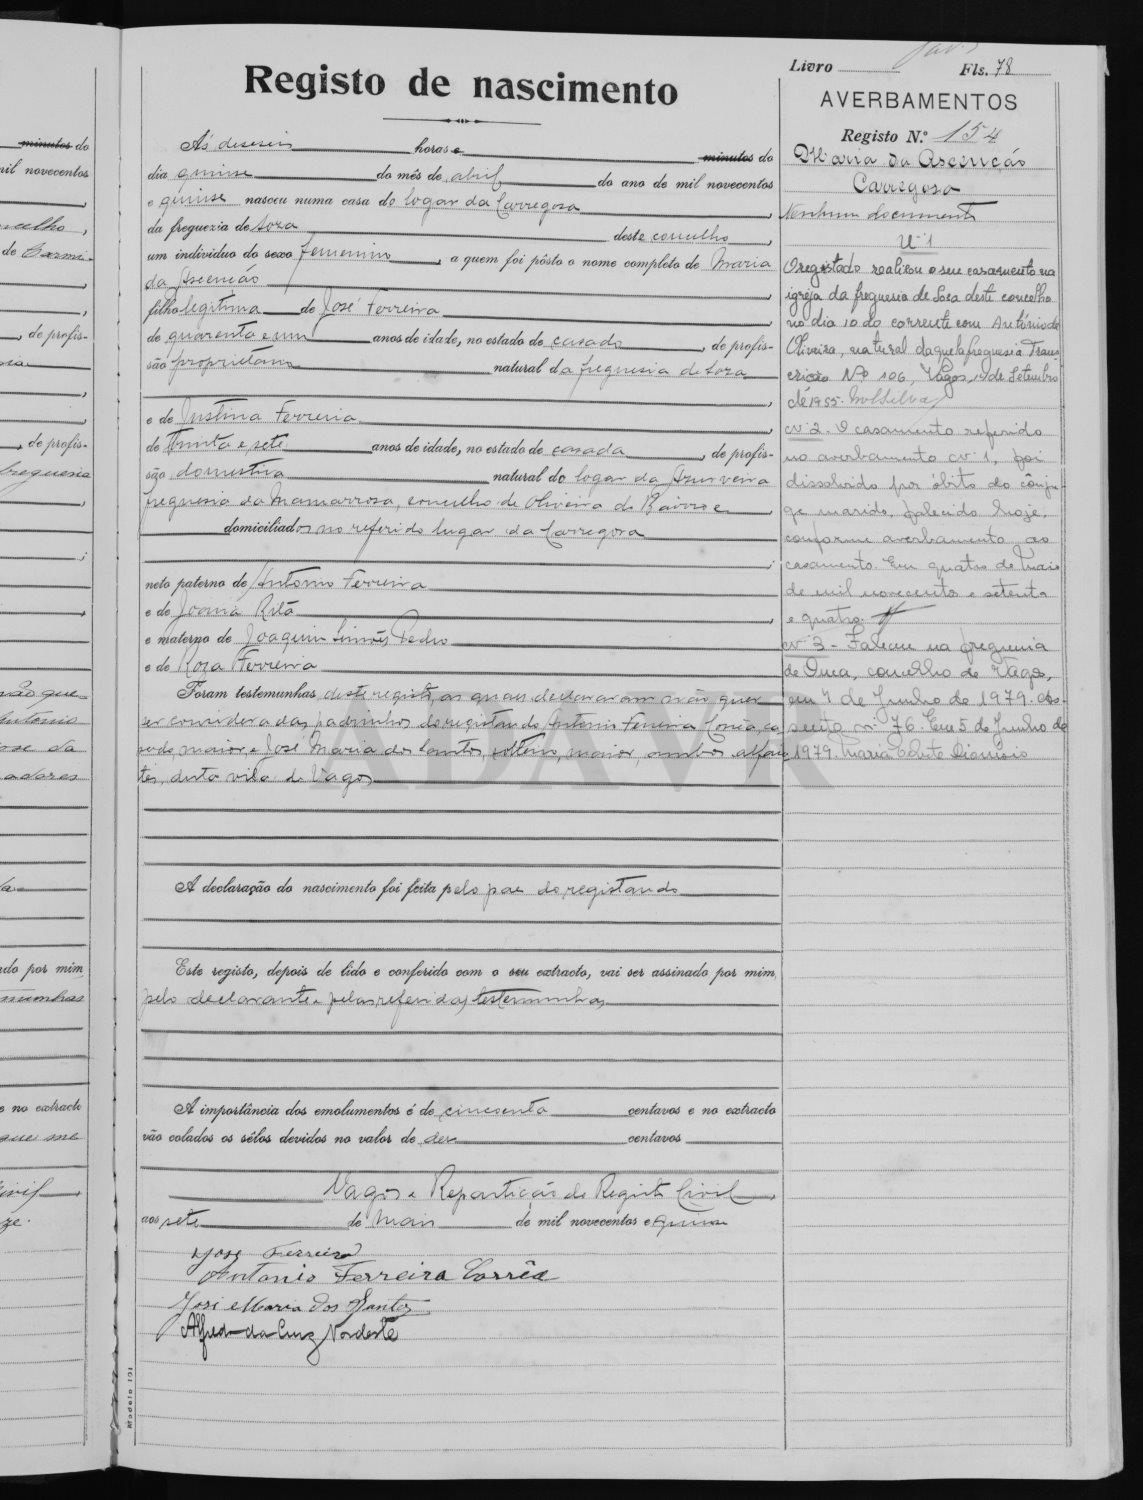 minutos do
mil novecentos
de profis-
de profis-
freguesia
do por mim
e no extracto
Livro Fls. 78
Registo de nascimento
Ás deseseis horas e minutos do
dia quinse do mês de abril do ano de mil novecentos
e quinse nasceu numa casa do logar da Carregosa
da freguezia de Soza deste concelho,
um individuo do sexo femenino, a quem foi pôsto o nome completo de Maria
da Ascenção
filho legitima de José Ferreira
de quarenta e um anos de idade, no estado de casado, de profis-
são proprietario natural da freguesia de Soza
e de Justina Ferreira
de trinta e sete anos de idade, no estado de casada, de profis-
são domestica natural do logar da Azurveira
freguesia da Mamarrosa, concelho de Oliveira do Bairro e
domiciliados no referido lugar da Carregosa
neto paterno de Antonio Ferreira
e de Joana Rita
e materno de Joaquim Simões Pedro
e de Roza Ferreira
Foram testemunhas deste registo, as quaes declararam não quer
ser consideradas padrinhos do registando, Antonio Ferreira Corrêa, ca
sado, maior, e José Maria dos Santos, solteiro, maior, ambos alfaia
tes, desta vila de Vagos
ADAVR
A declaração do nascimento foi feita pelo pae do registando
Este registo, depois de lido e conferido com o seu extracto, vai ser assinado por mim,
pelo declarante e pelas referidas testemunhas
A importância dos emolumentos é de cincoenta centavos e no extracto
vão colados os sêlos devidos no valor de dez centavos
Vagos e Repartição do Registo Civil,
aos sete de Maio de mil novecentos e quinse
José Ferreira
Antonio Ferreira Corrêa
José Maria dos Santos
Alfredo da Cruz Nordeste
Modelo 101
AVERBAMENTOS
Registo N.º 154
Maria da Ascenção
Carregosa
Nenhum documento
Nº 1
O registado realizou o seu casamento na
igreja da freguesia de Soza deste concelho
no dia 10 do corrente com António de
Oliveira, natural daquela freguesia Trans-
crição Nº 106, Vagos, 14 de Setembro
de 1955.
nº 2. O casamento referido
no averbamento nº 1, foi
dissolvido por óbito do cônju-
ge marido, falecido hoje,
conforme averbamento ao
casamento. Em quatro de Maio
de mil novecentos e setenta
e quatro.
nº 3 - Faleceu na freguesia
de Ouca, concelho de Vagos,
em 4 de Junho de 1979. As-
sento nº 76. Em 5 de Junho de
1979. Maria Dionisio